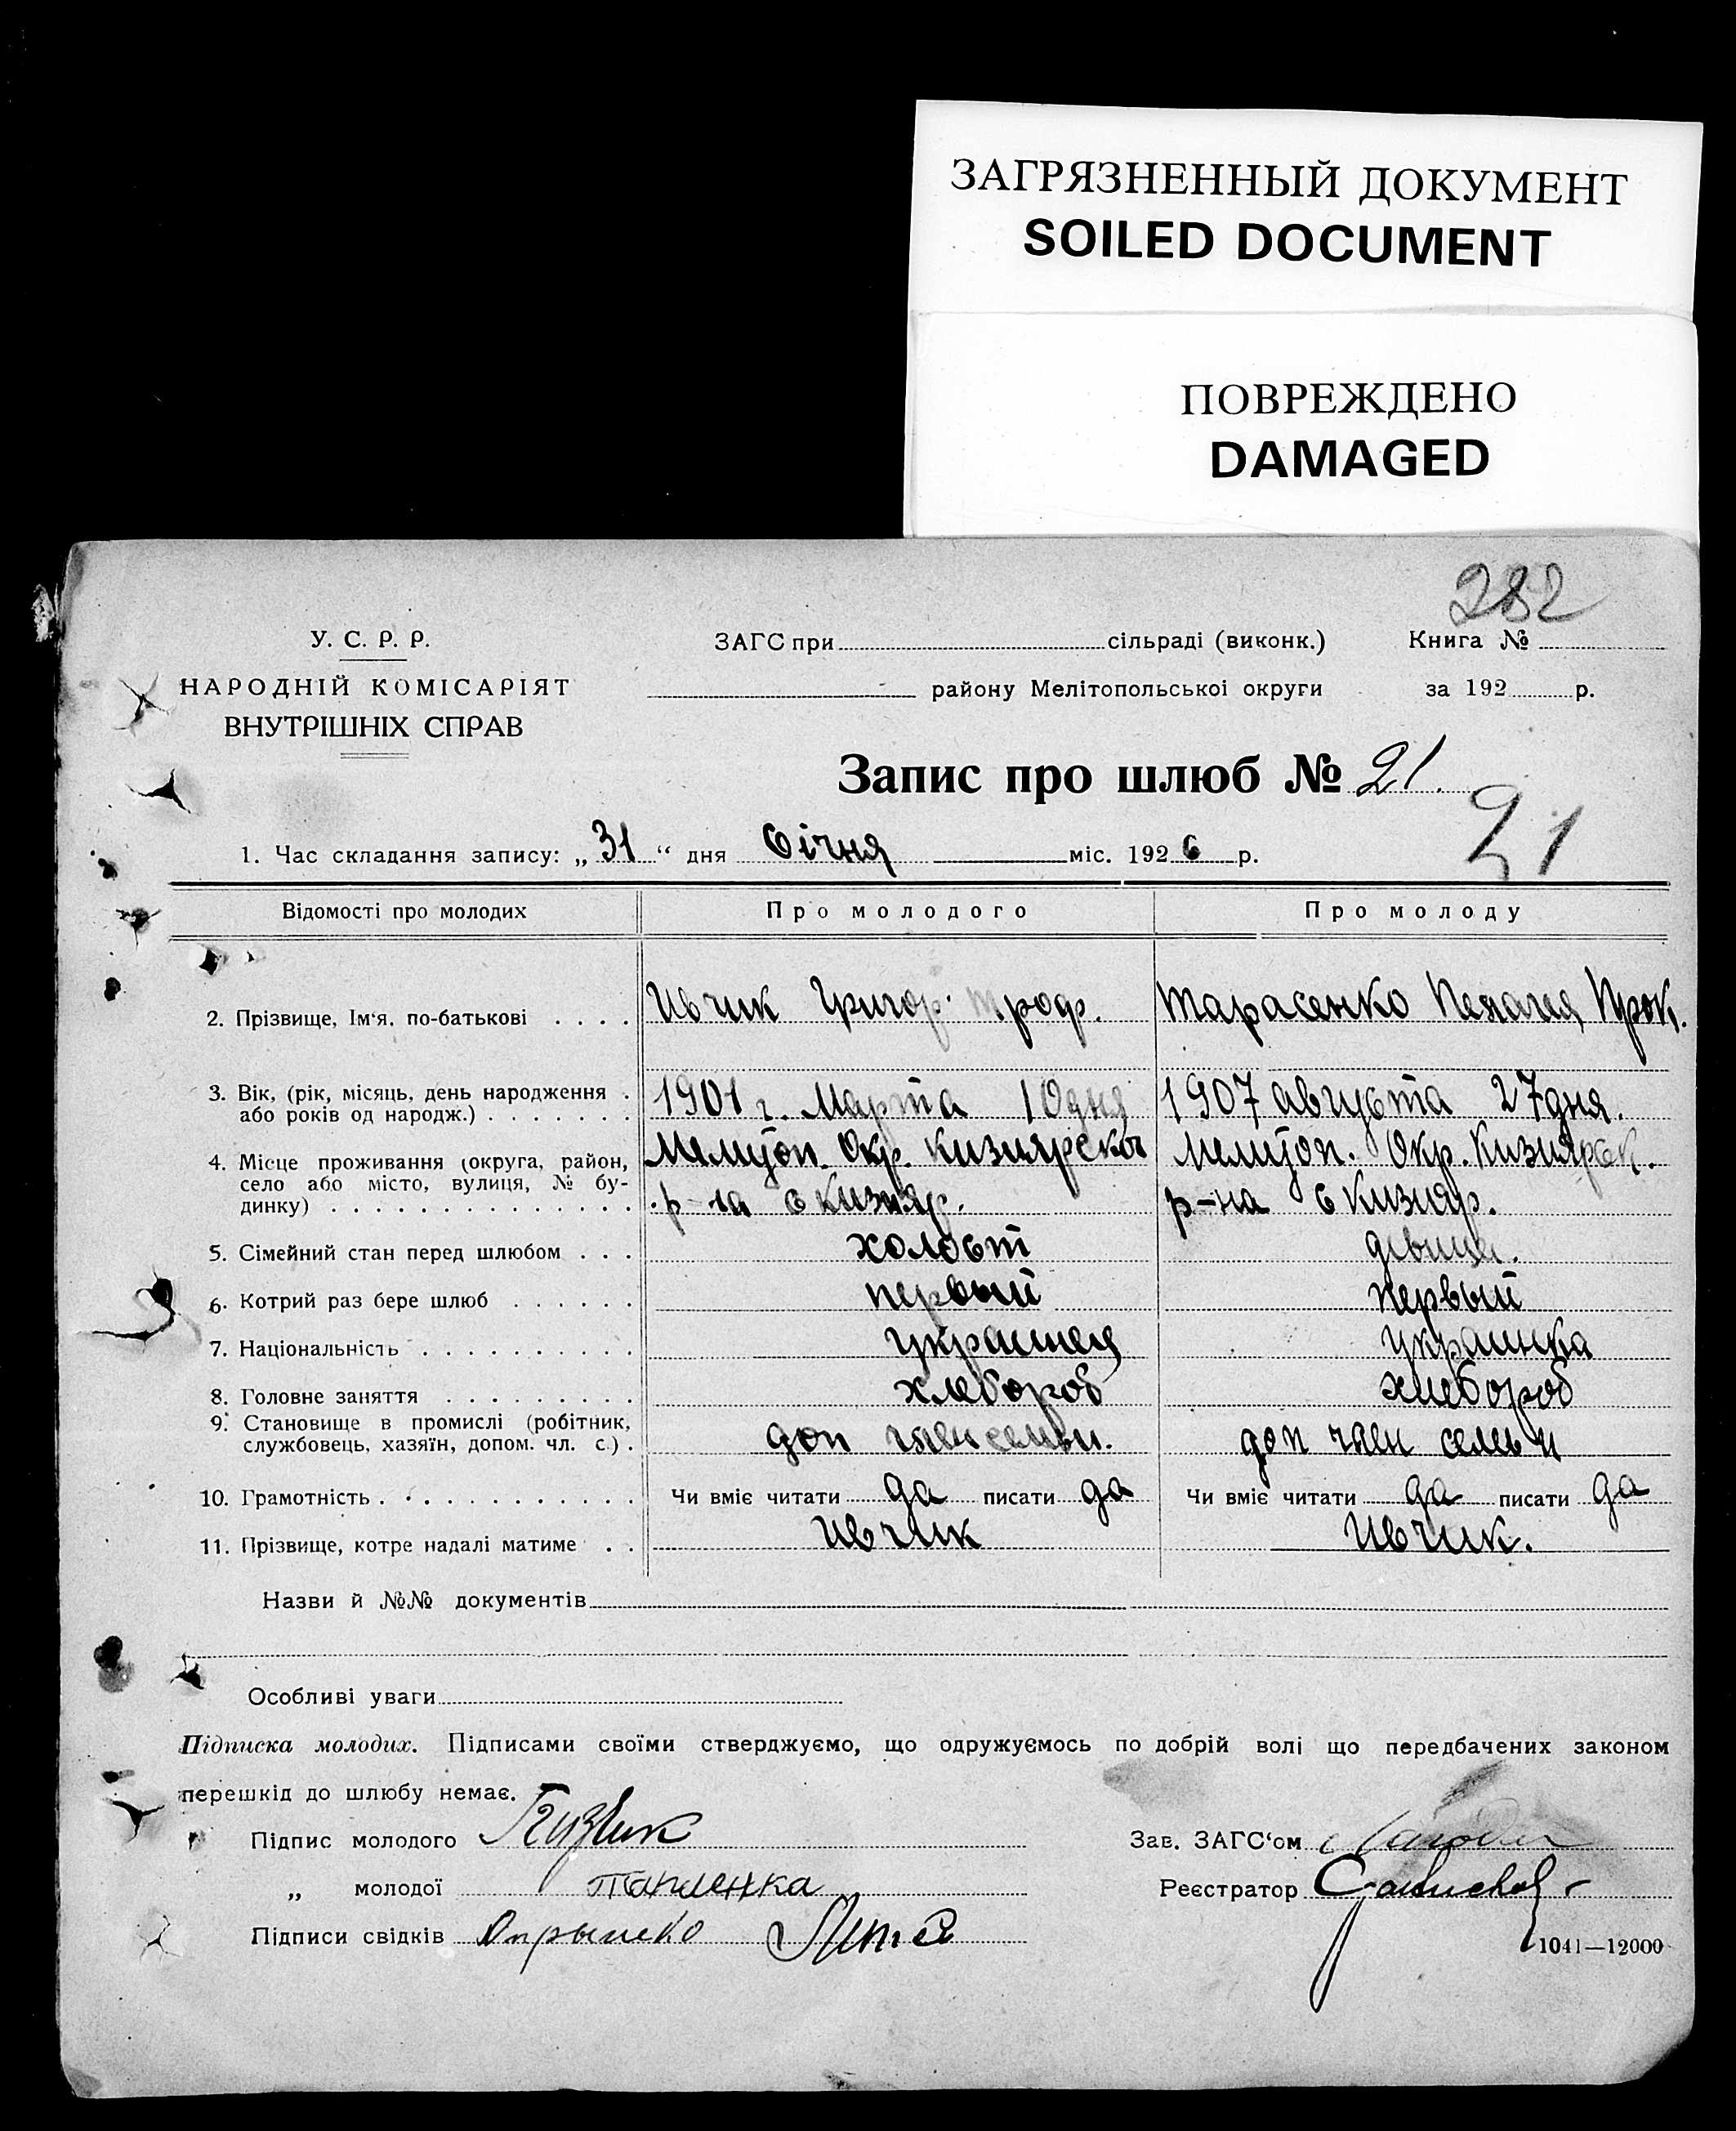 ЗАГРЯЗНЕННЫЙ ДОКУМЕНТ
SOILED DOCUMENT
ПОВРЕЖДЕНО
DAMAGED
282
У. С. Р. Р.
НАРОДНІЙ КОМІСАРІЯТ
ВНУТРІШНІХ СПРАВ
ЗАГС при сільраді (виконк.) Книга №
району Мелітопольської округи за 192 р.
Запис про шлюб № 21.
21
1. Час складання запису: „31“ дня Січня міс. 1926 р.
Відомості про молодих Про молодого Про молоду
2. Прізвище, Ім'я, по-батькові Ивчик Григор. Троф. Тарасенко Пелагея Прок.
3. Вік, (рік, місяць, день народження 1901 г. Марта 10 дня 1907 августа 27 дня.
або років од народж.)
4. Місце проживання (округа, район, Мелитоп. Окр. Кизиярског Мелитоп. Окр. Кизиярск.
село або місто, вулиця, № бу- р-на с Кизияр. р-на с Кизияр.
динку)
5. Сімейний стан перед шлюбом холост
6. Котрий раз бере шлюб первый первый
7. Національність украинец украинка
8. Головне заняття хлебороб хлебороб
9. Становище в промислі (робітник,
службовець, хазяїн, допом. чл. с.) доп член семьи. доп член семьи
10. Грамотність Чи вміє читати да писати да Чи вміє читати да писати да
11. Прізвище, котре надалі матиме Ивчик Ивчик.
Назви й №№ документів
Особливі уваги
Підписка молодих. Підписами своїми стверджуємо, що одружуємось по добрій волі що передбачених законом
перешкід до шлюбу немає.
Підпис молодого Зав. ЗАГС'ом
„ молодої Реєстратор
Підписи свідків
1041—12000